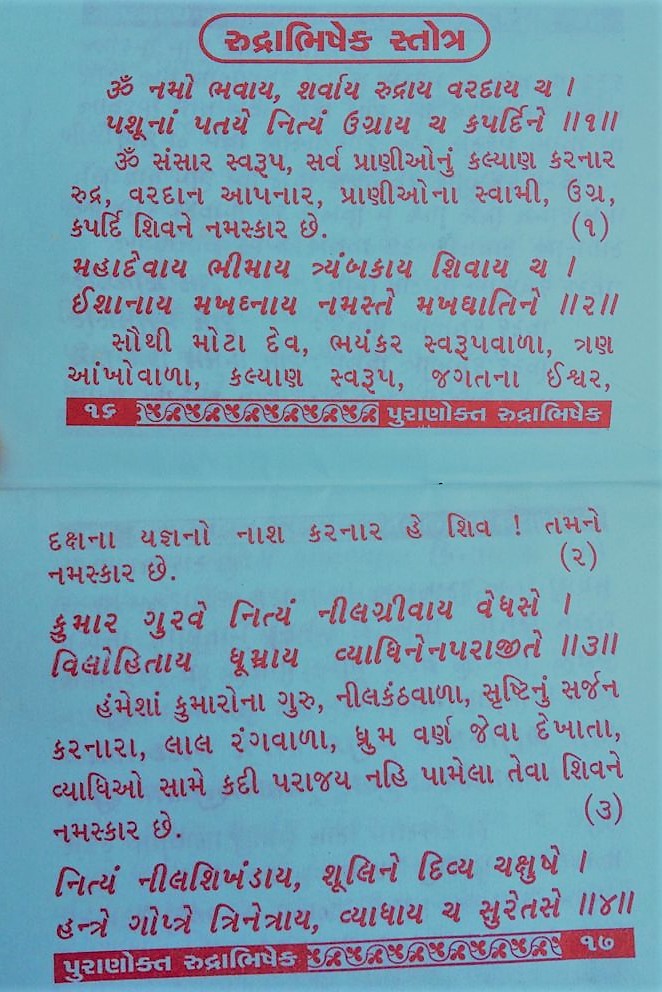 રુદ્રાભિષેક સ્તોત્ર
ૐ નમો ભવાય, શર્વાય રુદ્રાય વરદાય ચ ।
પશૂનાં પતયે નિત્યં ઉગ્રાય ચ કપર્દિને ॥૧॥
ૐ સંસાર સ્વરૂપ, સર્વ પ્રાણીઓનું કલ્યાણ કરનાર
રુદ્ર, વરદાન આપનાર, પ્રાણીઓના સ્વામી, ઉગ્ર,
કપર્દિ શિવને નમસ્કાર છે. (૧)
મહાદેવાય ભીમાય ત્ર્યંબકાય શિવાય ચ ।
ઈશાનાય મખઘ્નાય નમસ્તે મખઘાતિને ॥૨॥
સૌથી મોટા દેવ, ભયંકર સ્વરૂપવાળા, ત્રણ
આંખોવાળા, કલ્યાણ સ્વરૂપ, જગતના ઈશ્વર,
૧૬ પુરાણોક્ત રુદ્રાભિષેક
દક્ષના યજ્ઞનો નાશ કરનાર હે શિવ ! તમને
નમસ્કાર છે. (૨)
કુમાર ગુરવે નિત્યં નીલગ્રીવાય વેધસે ।
વિલોહિતાય ધૂમ્રાય વ્યાધિનેનપરાજીતે ॥૩॥
હંમેશાં કુમારોના ગુરુ, નીલકંઠવાળા, સૃષ્ટિનું સર્જન
કરનારા, લાલ રંગવાળા, ધ્રુમ વર્ણ જેવા દેખાતા,
વ્યાધિઓ સામે કદી પરાજય નહિ પામેલા તેવા શિવને
નમસ્કાર છે. (૩)
નિત્યં નીલશિખંડાય, શૂલિને દિવ્ય ચક્ષુષે ।
હન્ત્રે ગોપ્ત્રે ત્રિનેત્રાય, વ્યાધાય ચ સુરેતસે ॥૪॥
પુરાણોક્ત રુદ્રાભિષેક ૧૭